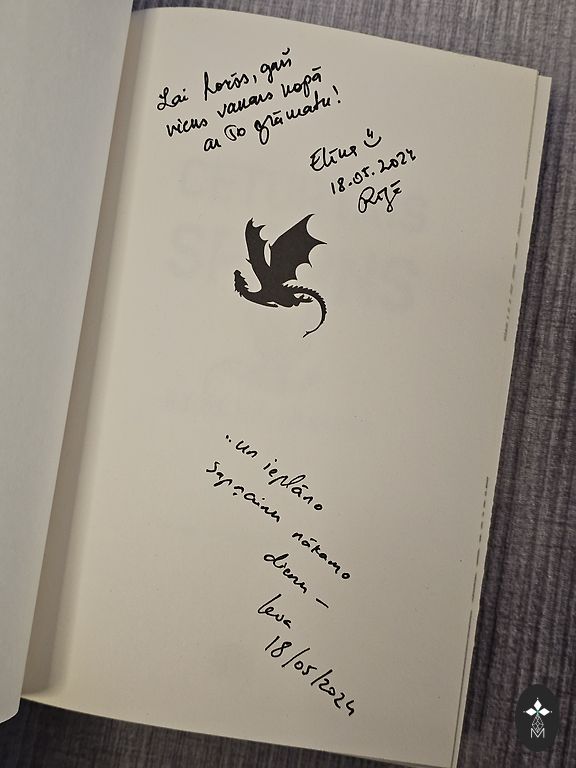 Lai foršs, garš
viens vakars kopā
ar šo grāmatu!
Elīna
18.05.2024
Rīgā
..un ieplāno
sapņainu nākamo
dienu –
Ieva
18/05/2024
M